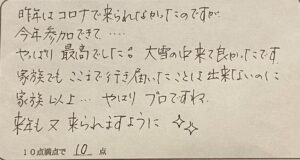 昨年はコロナで来られなかったのですが
今年参加できて‥‥
やっぱり最高でした。大雪の中来て良かったです
家族でもここまで行き届いたことは出来ないのに
家族以上… やはりプロですね
来年も又来られますように
10点満点で 10 点